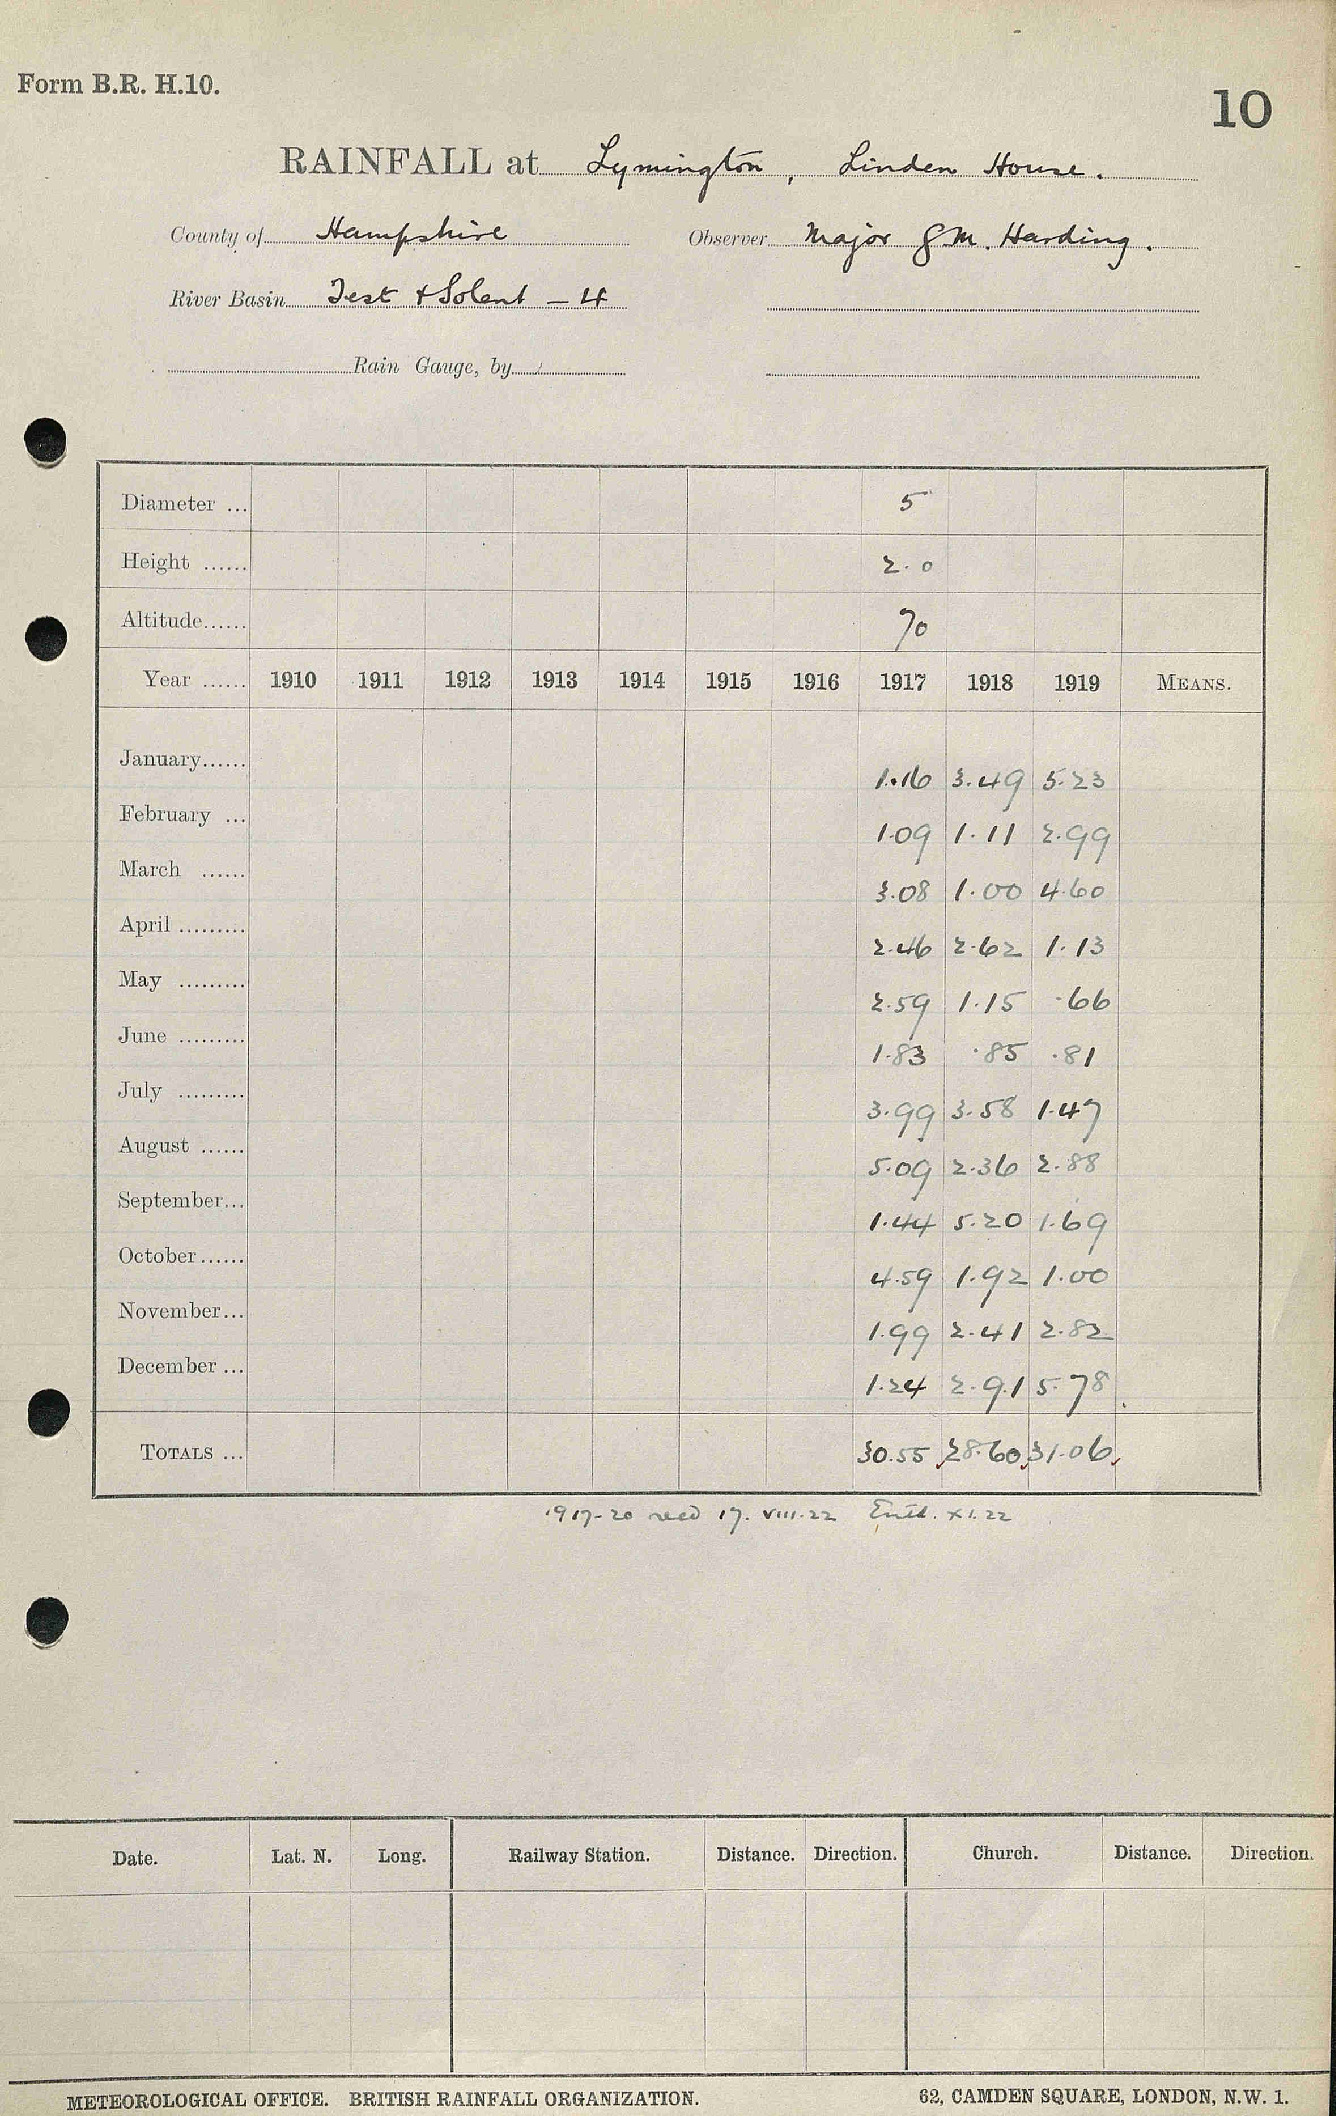 Form B.R. H.10.
10
RAINFALL at Lymington, Linden House.
County of Hampshire Observer Major G M. Harding.
River Basin Test & Solent - 4
Rain Gauge, by
Diameter ... 5
Height ...... 2.0
Altitude...... 70
Year ...... 1910 1911 1912 1913 1914 1915 1916 1917 1918 1919 MEANS.
January...... 1.16 3.49 5.23
February ... 1.09 1.11 2.99
March ...... 3.08 1.00 4.60
April ......... 2.46 2.62 1.13
May ......... 2.59 1.15 .66
June ......... 1.83 .85 .81
July ......... 3.99 3.58 1.47
August ...... 5.09 2.36 2.88
September... 1.44 5.20 1.69
October...... 4.59 1.92 1.00
November... 1.99 2.41 2.82
December ... 1.24 2.91 5.78
TOTALS ... 30.55 28.60 31.06
1917-20 recd 17. VIII.22 Entd. XI.22
Date. Lat. N. Long. Railway Station. Distance. Direction. Church. Distance. Direction.
METEOROLOGICAL OFFICE. BRITISH RAINFALL ORGANIZATION. 62, CAMDEN SQUARE, LONDON, N.W. 1.